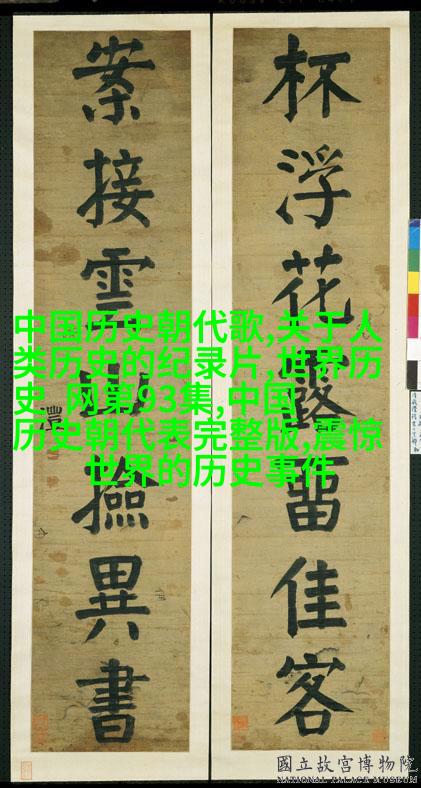 杯浮花露畱佳客
案接雲山撿異書
中国历史朝代歌,关于人
类历史的纪录片,世界历
史 网第93集,中国
历史朝代表完整版,震惊
世界的历史事件
國立故宮博物院
NATIONAL PALACE MUSEUM